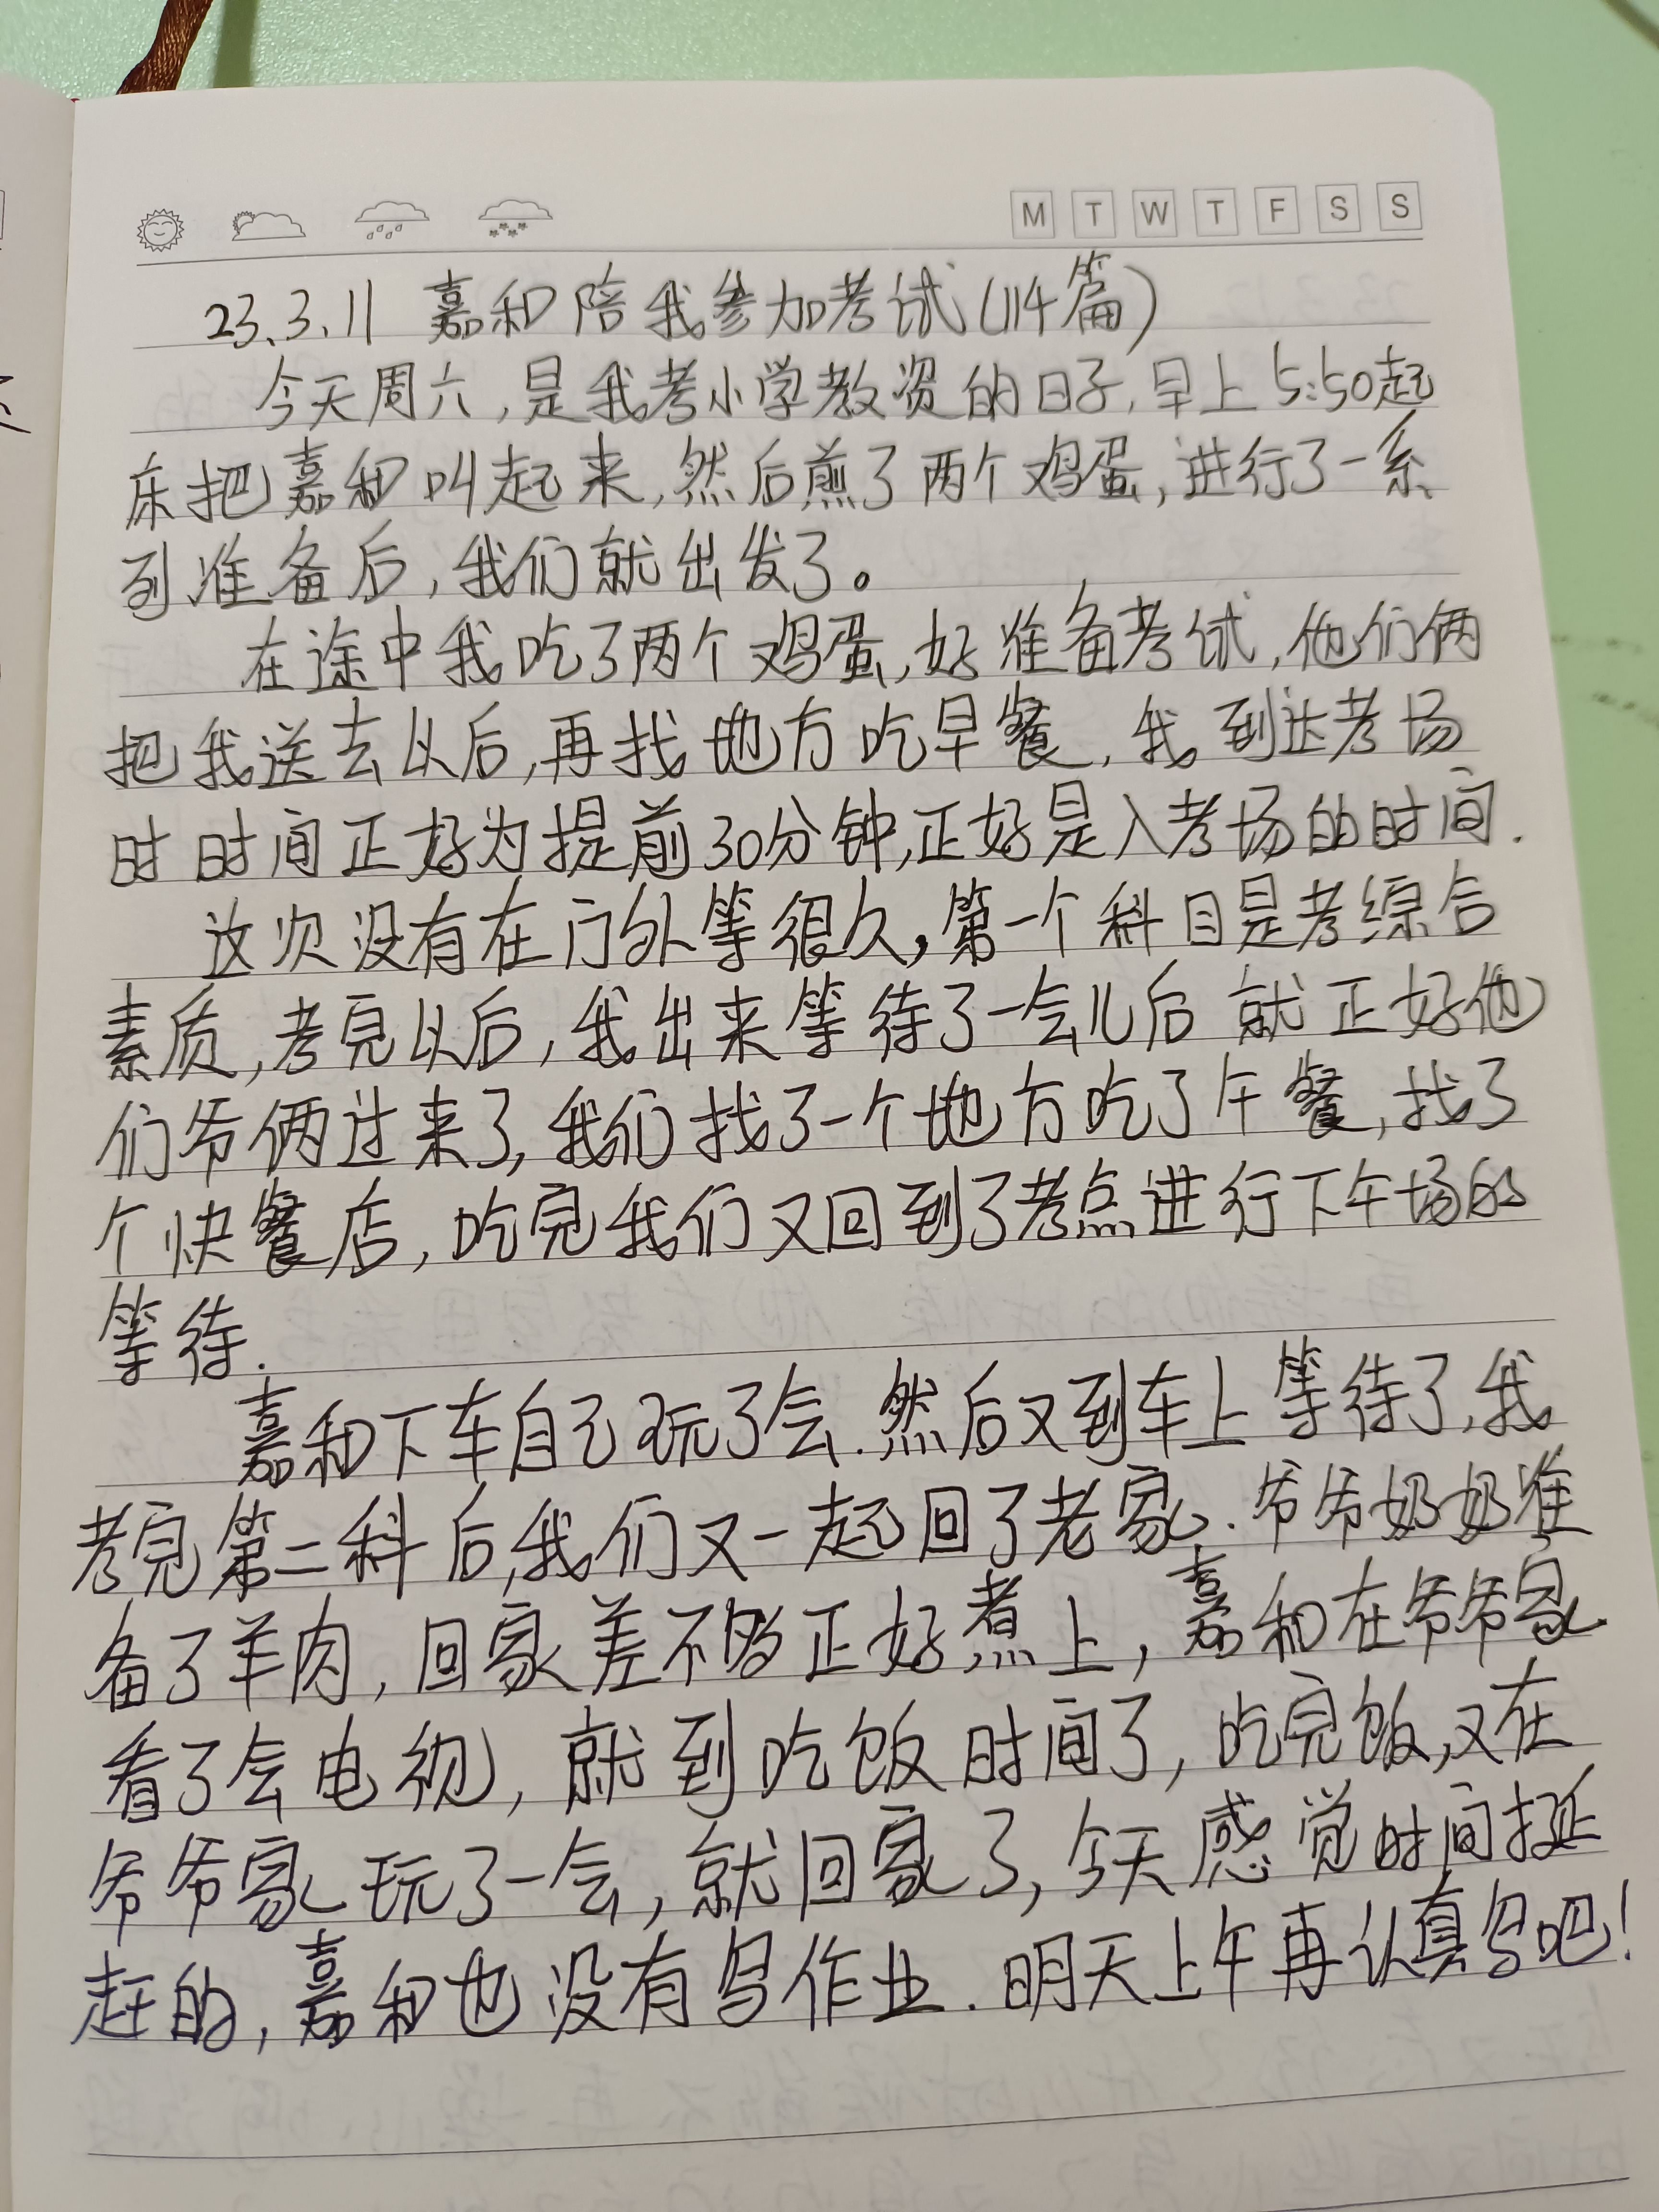 M T W T F S S
23.3.11 嘉和陪我参加考试(114篇)
今天周六,是我考小学教资的日子,早上5:50起
床把嘉和叫起来,然后煎了两个鸡蛋,进行了一系
列准备后,我们就出发了。
在途中我吃了两个鸡蛋,好准备考试,他们俩
把我送去以后,再找地方吃早餐,我到达考场
时时间正好为提前30分钟,正好是入考场的时间.
这次没有在门外等很久,第一个科目是考综合
素质,考完以后,我出来等待了一会儿后就正好他
们爷俩过来了,我们找了一个地方吃了午餐,找了
个快餐店,吃完我们又回到了考点进行下午场的
等待.
嘉和下车自己玩了会.然后又到车上等待了,我
考完第二科后,我们又一起回了老家.爷爷奶奶准
备了羊肉,回家差不多正好煮上,嘉和在爷爷家
看了会电视,就到吃饭时间了,吃完饭,又在
爷爷家玩了一会,就回家了,今天感觉时间挺
赶的,嘉和也没有写作业.明天上午再认真写吧!